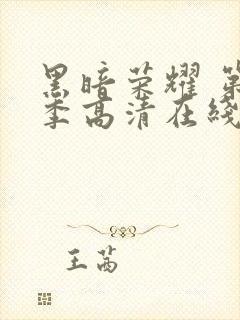 黑暗荣耀 第
季高清在线
王茜